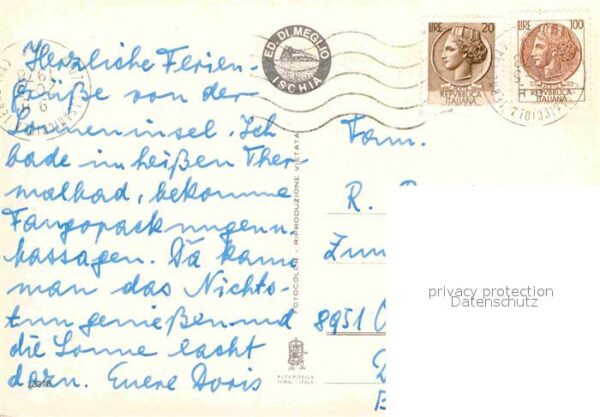 Herzliche Ferien-
grüße von der
Sonneninsel. Ich
bade im heißen Ther
malbad, bekomme
Fangopackungen u.
Massagen. Da kann
man das Nichts-
tun genießen und
die Sonne lacht
dazu. Euere Doris
ED. DI MEGLIO
ISCHIA
LIRE 20
REPUBBLICA
ITALIANA
LIRE 100
REPUBBLICA
ITALIANA
FOTOCOLOR - RIPRODUZIONE VIETATA
Fam.
R.
8951
privacy protection
Datenschutz
ALTEROCCA
TERNI - ITALY